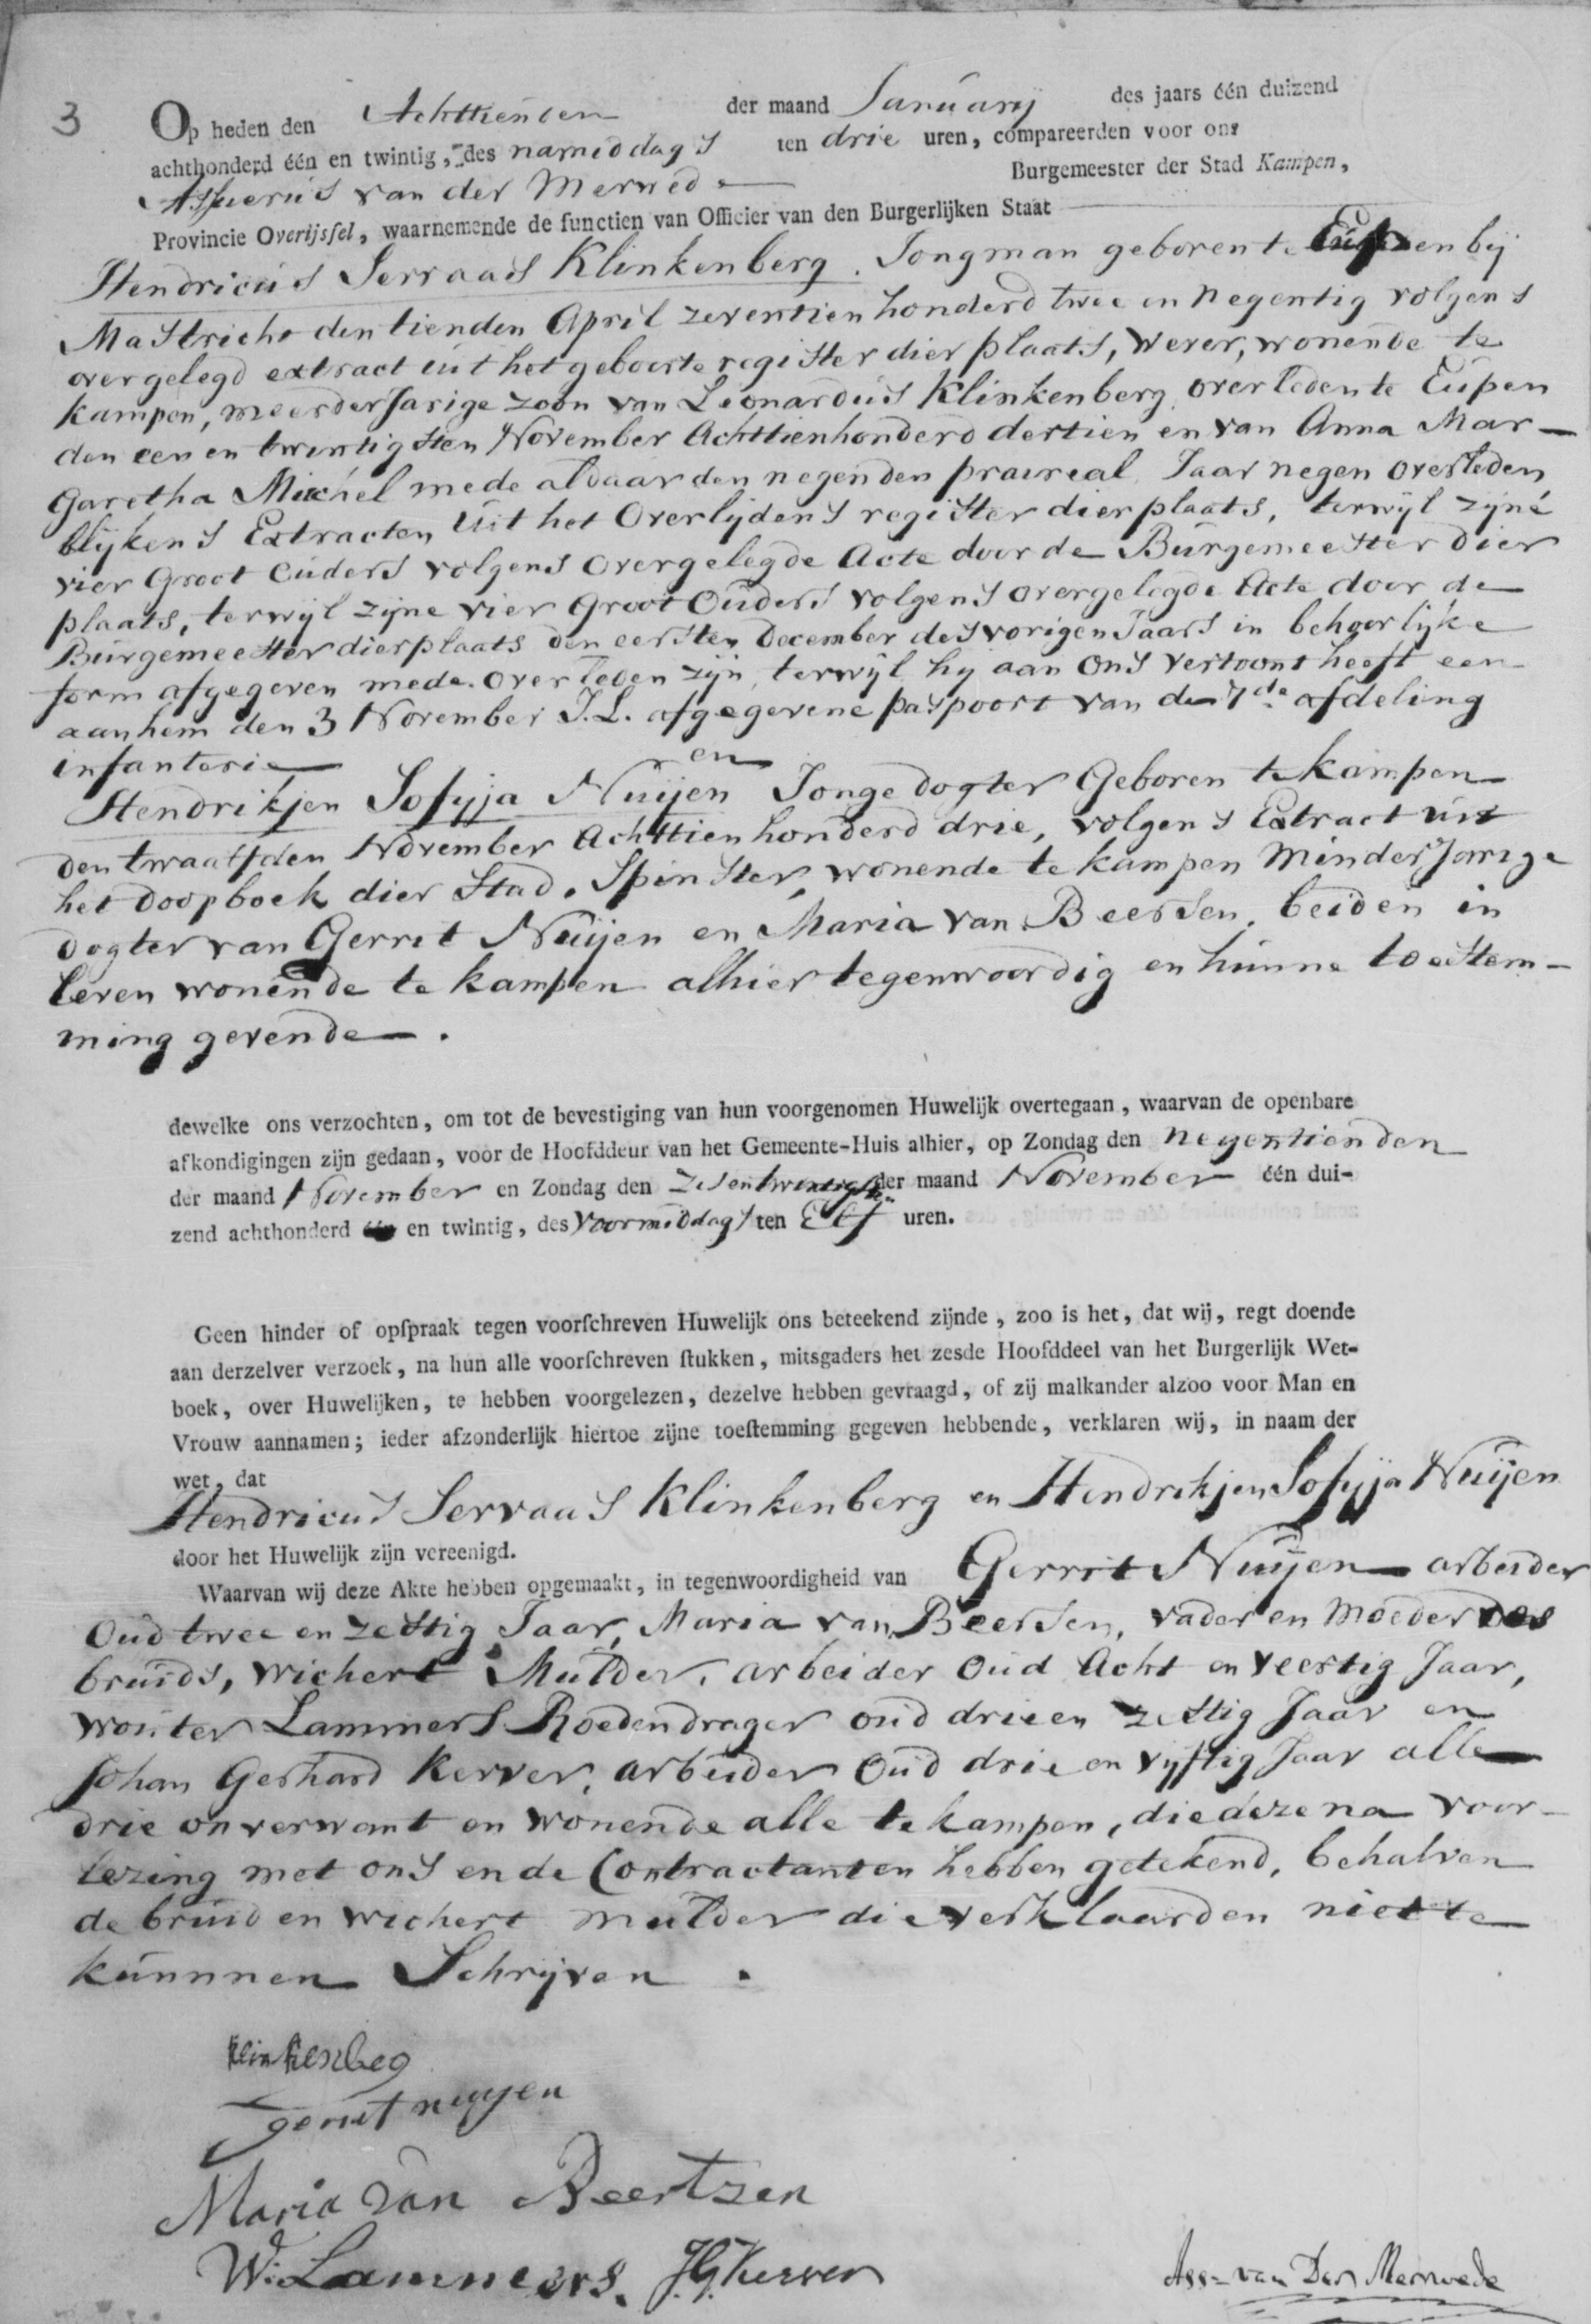 3
Op heden den Achttienden der maand January des jaars één duizend
achthonderd één en twintig, des namiddags ten drie uren, compareerden voor ons
Assuerus van der Merwede Burgemeester der Stad Kampen,
Provincie Overijsſel, waarnemende de functien van Officier van den Burgerlijken Staat
Hendricus Servaas Klinkenberg. Jongman geboren te Eupen bij
Mastricht den tienden April zeventien honderd twee en Negentig volgens
overgelegd extract uit het geboorte register dier plaats, Wever, wonende te
Kampen, meerderjarige zoon van Leonardus Klinkenberg overleden te Eupen
den een en twintigsten November Achttienhonderd dertien en van Anna Mar-
garetha Michel mede aldaar den negenden praireal Jaar negen overleden
blijkens Extracten Uit het Overlijdens register dier plaats, terwijl zijne
vier Groot Ouders volgens overgelegde Acte door de Burgemeester dier
plaats, terwijl zijne vier Groot Ouders volgens overgelegde Acte door de
Burgemeester dier plaats den eersten December des vorigen Jaars in behoorlijke
form afgegeven mede overleden zijn, terwijl hij aan Ons vertoont heeft een
aan hem den 3 November J.L. afgegevene paspoort van de 7de afdeling
infanterie
en
Hendrikjen Sofyja Nuijen Jonge dogter Geboren te Kampen
den twaalfden November Achttien honderd drie, volgens Extract uit
het doopboek dier Stad. Spinster, wonende te Kampen Minderjarige
dogter van Gerrit Nuijen en Maria van Beersen, beiden in
leven wonende te Kampen alhier tegenwoordig en hunne toestem-
ming gevende.
dewelke ons verzochten, om tot de bevestiging van hun voorgenomen Huwelijk overtegaan, waarvan de openbare
afkondigingen zijn gedaan, voor de Hoofddeur van het Gemeente-Huis alhier, op Zondag den Negentienden
der maand November en Zondag den zesentwintigsten der maand November één dui-
zend achthonderd en twintig, des Voormiddags ten Elf uren.
Geen hinder of opſpraak tegen voorſchreven Huwelijk ons beteekend zijnde, zoo is het, dat wij, regt doende
aan derzelver verzoek, na hun alle voorſchreven ſtukken, mitsgaders het zesde Hoofddeel van het Burgerlijk Wet-
boek, over Huwelijken, te hebben voorgelezen, dezelve hebben gevraagd, of zij malkander alzoo voor Man en
Vrouw aannamen; ieder afzonderlijk hiertoe zijne toeſtemming gegeven hebbende, verklaren wij, in naam der
wet, dat
Hendricus Servaas Klinkenberg en Hendrikjen Sofyja Nuijen
door het Huwelijk zijn vereenigd.
Waarvan wij deze Akte hebben opgemaakt, in tegenwoordigheid van Gerrit Nuijen arbeider
Oud twee en zestig Jaar, Maria van Beersen, vader en Moeder des
bruids, Wichert Mulder, arbeider Oud Acht en veertig Jaar,
Wouter Lammers Roedendrager oud drie en zestig Jaar en
Johan Gerhard Kerver, arbeider Oud drie en vijftig Jaar alle
drie onverwant en wonende alle te Kampen, die deze na voor-
lezing met ons en de Contractanten hebben getekend, behalven
de bruid en Wichert Mulder die verklaarden niet te
kunnnen Schrijven.
Klinkenbeg
gerrit nuyen
Maria van Beertzen
W. Lammers. J.G. Kerver
Ass. van Der Merwede